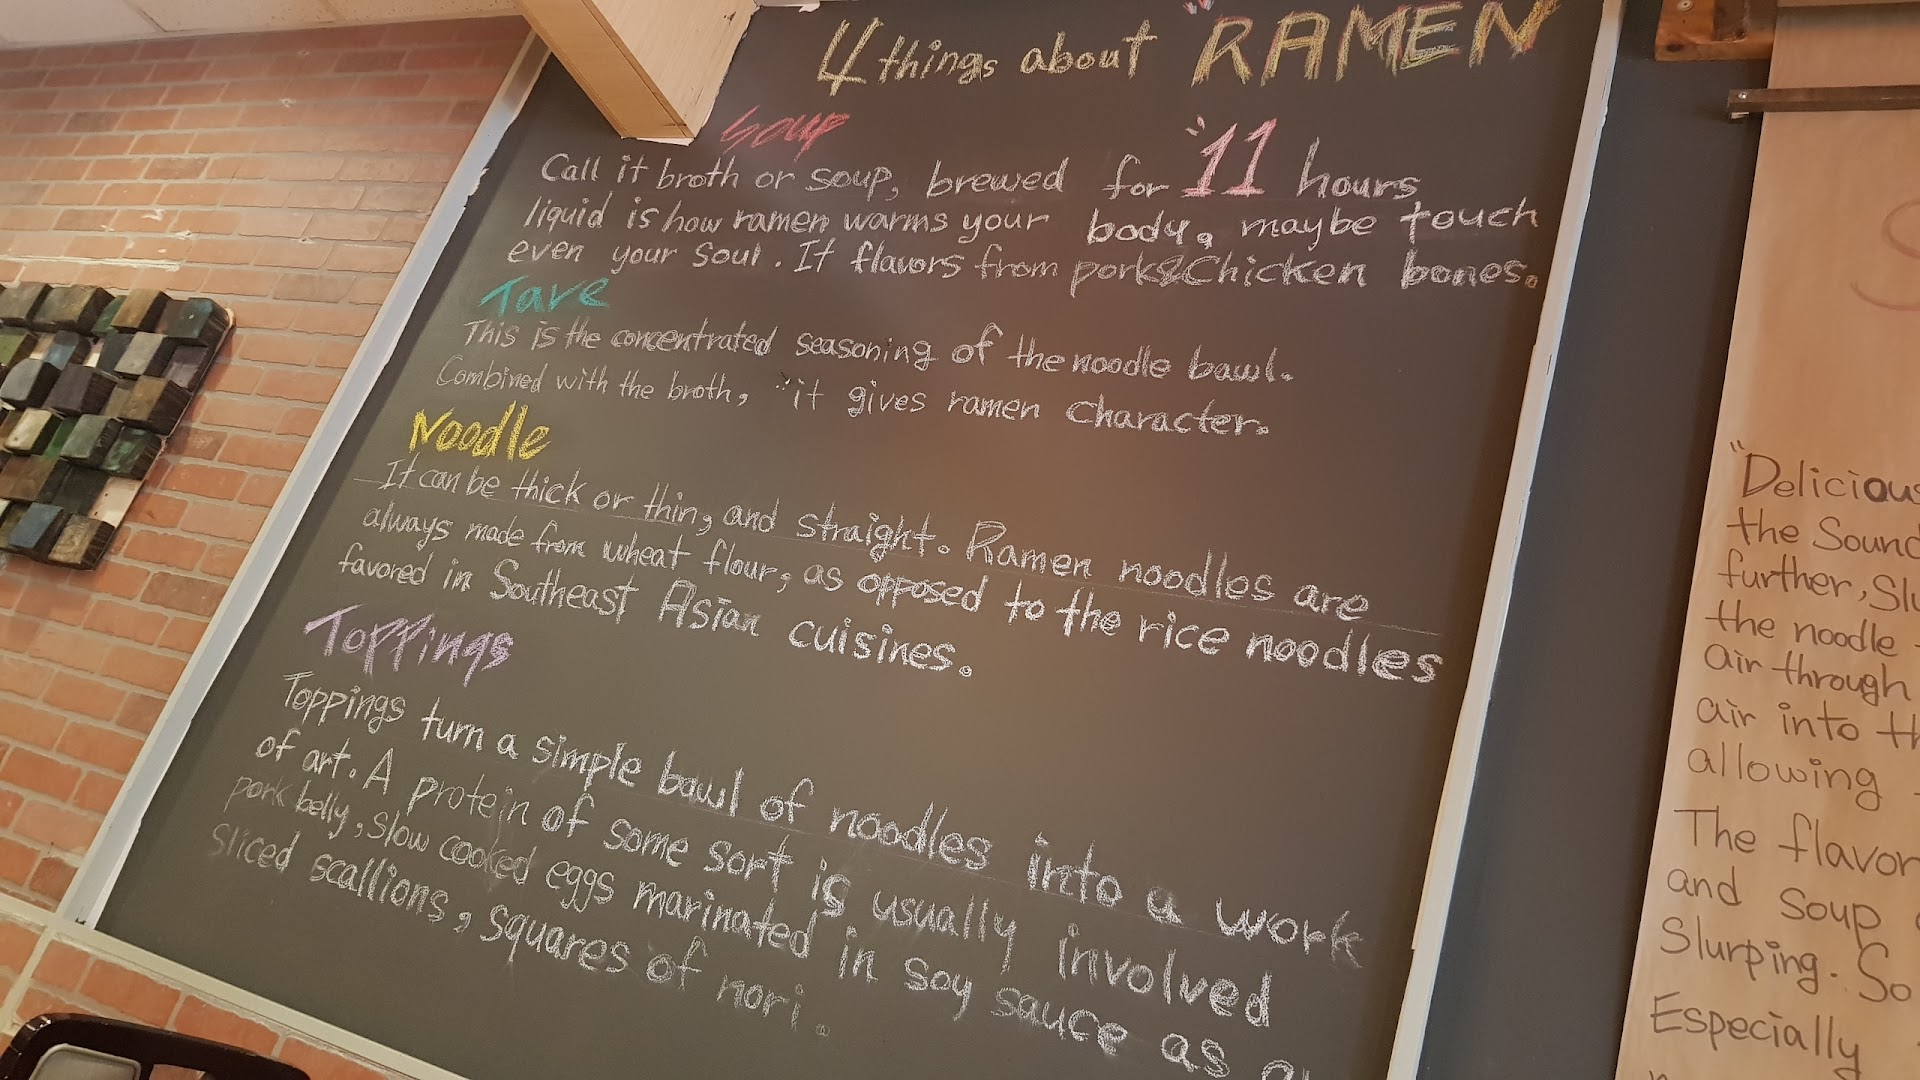 4 things about "RAMEN
Soup
Call it broth or soup, brewed for "11 hours
liquid is how ramen warms your body, maybe touch
even your soul. It flavors from pork&Chicken bones.
Tare
This is the concentrated seasoning of the noodle bawl.
Combined with the broth, "it gives ramen character.
Noodle
It can be thick or thin, and straight. Ramen noodles are
always made from wheat flour, as opposed to the rice noodles
favored in Southeast Asian cuisines.
Toppings
Toppings turn a simple bawl of noodles into a work
of art. A protein of some sort is usually involved
pork belly, slow cooked eggs marinated in soy sauce as
sliced scallions, squares of nori.
"Delicious
the Sound
further,
the noodle
air through
air into
allowing
The flavor
and soup
Slurping. So
Especially